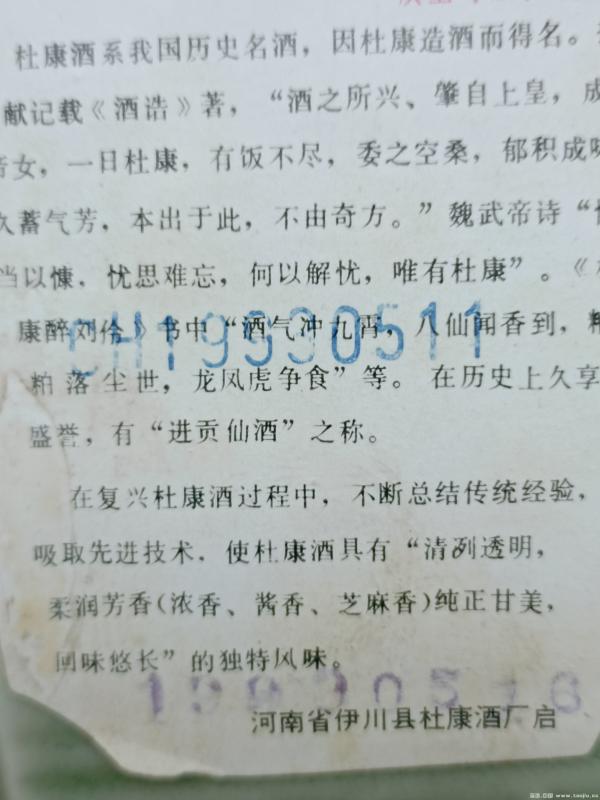 杜康酒系我国历史名酒，因杜康造酒而得名。
献记载《酒诰》著，“酒之所兴、肇自上皇，成
帝女，一日杜康，有饭不尽，委之空桑，郁积成味
久蓄气芳，本出于此，不由奇方。”魏武帝诗“
当以慷．忧思难忘，何以解忧，唯有杜康”。《
康醉刘伶》书中“酒气冲九霄，八仙闻香到，糟
CH19930511
粕落尘世，龙凤虎争食”等。在历史上久享
盛誉，有“进贡仙酒”之称。
在复兴杜康酒过程中，不断总结传统经验，
吸取先进技术．使杜康酒具有“清冽透明，
柔润芳香(浓香、酱香、芝麻香)纯正甘美，
回味悠长”的独特风味。
河南省伊川县杜康酒厂启